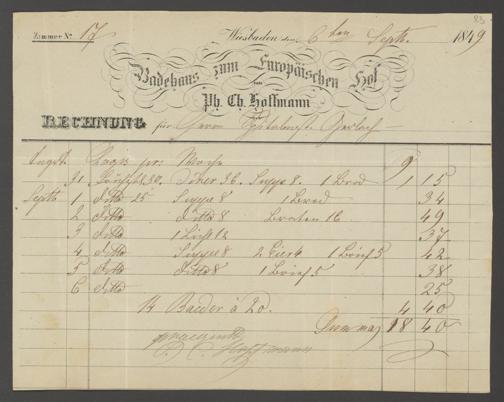 83
Zimmer No. 17 Wiesbaden den 6ten Septb. 1849
Badehaus zum Europäischen Hof
von
Ph. Ch. Hoffmann
RECHNUNG für Herrn Gerlach
Augst. Logis pr. Woche 9
31 30. Diner 36. Suppe 8. 1 Brod 1 15
Septb 1 ditto 25 Suppe 8 1 Brod 34
2 ditto ditto 8 Braten 16 49
3 ditto 1 Licht 12 37
4 ditto Suppe 8 2 Eier 4 1 Brief 5 42
5 ditto ditto 8 1 Brief 5 38
6 ditto 25
14 Baeder à 20. 4 40
Summa 18 40
Hoffmann